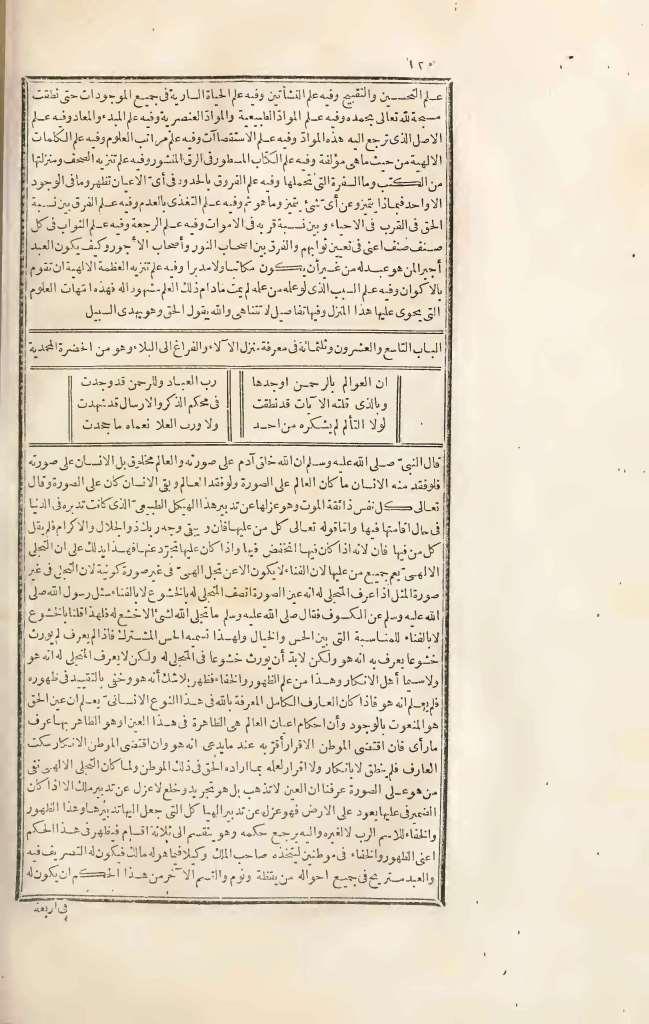 ١٢٥
علم التحسين والتقبيح وفيه علم النشأتين وفيه علم الحياة السارية فى جميع الموجودات حتى نطقت
مسبحة لله تعالى بحمده وفيه علم المواد الطبيعية والمواد العنصرية وفيه علم المبدء والمعاد وفيه علم
الاصل الذى ترجع اليه هذه المواد وفيه علم الاستقصاآت وفيه علم مراتب العلوم وفيه علم الكلمات
الالهية من حيث ماهى مؤلفة وفيه علم الكتاب المسطور فى الرق المنشور وفيه علم تنزيه الصحف ومنزلتها
من الكتب وما السفرة التى تحملها وفيه علم الفروق بالحدود فى أىّ الاعيان تظهر وما فى الوجود
الا واحد فبماذا يتميز وعن أىّ شئ يتميز وما هو ثم وفيه علم التغذى بالعدم وفيه علم الفرق بين نسبة
الحق فى القرب فى الاحياء وبين نسبة قربه فى الاموات وفيه علم الرجعة وفيه علم الثواب فى كل
صنف صنف اعنى فى تعيين ثوابهم والفرق بين اصحاب النور وأصحاب الأجور وكيف يكون العبد
أجيرا لمن هو عبد له من غير أن يكون مكاتبا ولا مدبرا وفيه علم تنزيه العظمة الالهية ان تقوم
بالاكوان وفيه علم السبب الذى لو علمه من علمه لم يمت مادام ذلك العلم مشهودا له فهذه امهات العلوم
التى يحوى عليها هذا المنزل وفيها تفاصيل لا تتناهى والله يقول الحق وهو يهدى السبيل
الباب التاسع والعشرون وثلثمائة فى معرفة منزل الآلاء والفراغ الى البلاء وهو من الحضرة المحمدية
ان العوالم بالرحمن اوجدها رب العباد وللرحمن قد وجدت
وبالذى قلته الآيات قد نطقت فى محكم الذكر والارسال قد شهدت
لولا التألم لم يشكره من احد ولا ورب العلا نعماه ما جحدت
قال النبىّ صلى الله عليه وسلم ان الله خلق آدم على صورته والعالم مخلوق بل الانسان على صورته
فلو فقد منه الانسان ما كان العالم على الصورة ولو فقد العالم وبقى الانسان كان على الصورة وقال
تعالى كل نفس ذائقة الموت وهو عزلها عن تدبير هذا الهيكل الطبيعىّ الذى كانت تدبره فى الدنيا
فى حال اقامتها فيها وانما قوله تعالى كل من عليها فان ويبقى وجه ربك ذو الجلال والاكرام فلم يقل
كل من فيها فان لانه اذا كان فيها انحفض فيها واذا كان عليها تجرّد عنها فهذا يدلك على ان التجلى
الالهىّ يعم جميع من عليها لان الفناء لا يكون الا عن تجل الهىّ فى غير صورة كونية لان التجلى فى غير
صورة المثل اذا عرف المتجلى له انه عين الصورة اتصف المتجلى له بالخشوع لا بالفناء سئل رسول الله صلى
الله عليه وسلم عن الكسوف فقال صلى الله عليه وسلم ما تجلى الله لشئ الا خشع له فلهذا قلنا بالخشوع
لا بالفناء للمناسبة التى بين الحس والخيال ولهذا نسميه الحس المشترك فاذا لم يعرف لم يورث
خشوعا يعرف به انه هو ولكن لا بدّ أن يورث خشوعا فى المتجلى له ولكن لا يعرف المتجلى له انه هو
ولا سيما أهل الافكار وهذا من علم الظهور والخفاء فظهر بلا شك أنه هو وخفى بالتقييد فى ظهوره
فلم يعلم انه هو فاذا كان العارف الكامل المعرفة بالله فى هذا النوع الانسانىّ يعلم ان عين الحق
هو المنعوت بالوجود وأن احكام اعيان العالم هى الظاهرة فى هذا العين او هو الظاهر بها عرف
ما رأى فان اقتضى الموطن الاقرار أقرّ به عند ما يدعى انه هو وان اقتضى الموطن الانكار سكت
العارف فلم ينطق لا بانكار ولا اقرار لعلمه بما اراده الحق فى ذلك الموطن ولما كان التجلى الالهى نفى
من هو على الصورة عرفنا ان العين لا تذهب بل هو تجريد وخلع لا عزل عن تدبير ملك الا اذا كان
الضمير فى عليها يعود على الارض فهو عزل عن تدبير الهياكل التى جعل اليها تدبيرها وهذا الظهور
والخفاء للاسم الرب لا لغيره واليه يرجع حكمه وهو ينقسم الى ثلاثة اقسام فيظهر فى هذا الحكم
اعنى الظهور والخفاء فى موطنين ليتخذه صاحب الملك وكيلا فيما هو له مالك فيكون له التصريف فيه
والعبد مستريح فى جميع احواله من يقظة ونوم والقسم الآخر من هذا الحكم ان يكون له
فى اربعة